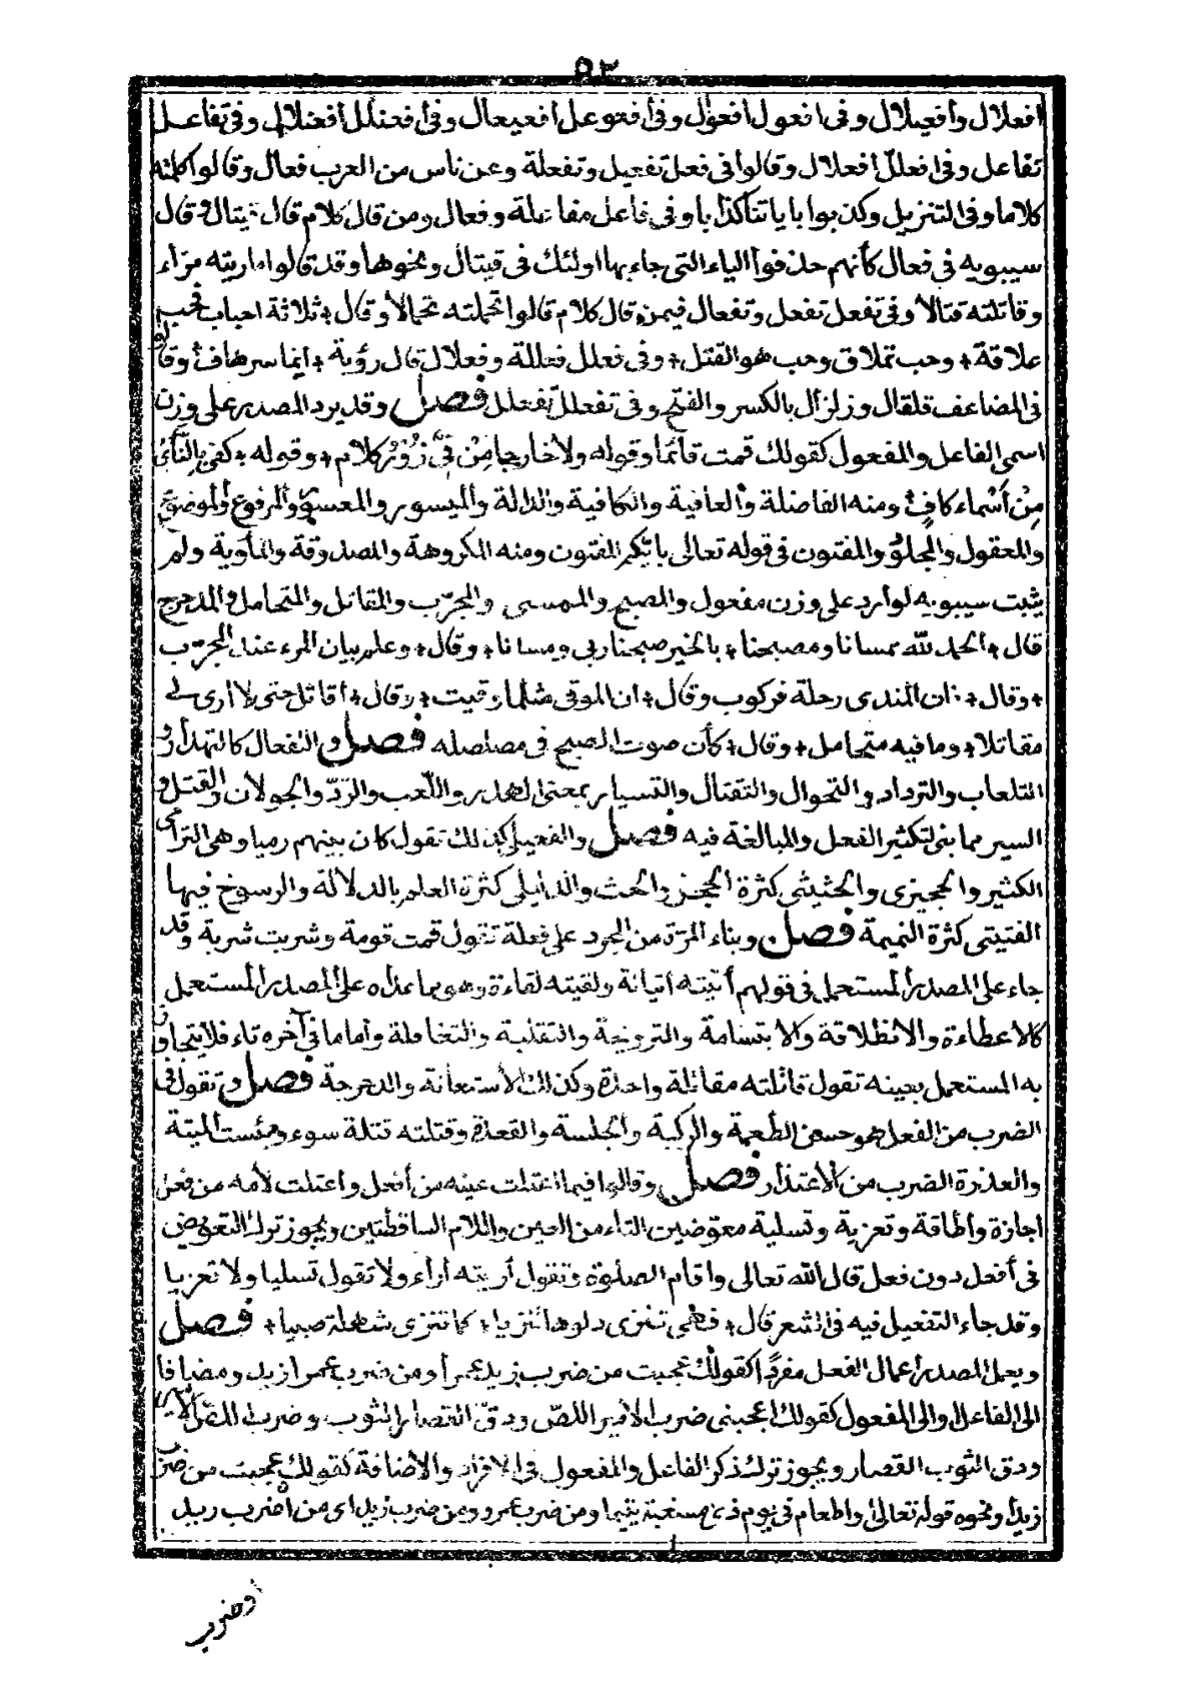 ٥٣
افعلال وافعيلال وفى افعول افعوال وفى أفعوعل افعيعال وفى أفعنلل افعنلال وفى تفاعل
تفاعل وفى افعلل افعلال وقالوا فى فعل تفعيل وتفعلة وعن ناس من العرب فعال وقالوا كلمته
كلاما وفى التنزيل وكذبوا باياتنا كذابا وفى فاعل مفاعلة وفعال ومن قال كلام قال قيتال وقال
سيبويه فى فعال كأنهم حذفوا الياء التى جاء بها اولئك فى قيتال ونحوها وقد قالوا ماريته مراء
وقاتلته قتالا وفى تفعل تفعل وتفعال فيمن قال كلام قالوا تحملته تحمالا وقال ٭ ثلاثة احباب فحب
علاقة ٭ وحب تملاق وحب هو القتل ٭ وفى فعلل فعللة وفعلال قال رؤبة ٭ ايما سرهاف ٭ وقالوا
فى المضاعف قلقال وزلزال بالكسر والفتح وفى تفعلل تفعلل فصل وقد يرد المصدر على وزن
اسمى الفاعل والمفعول كقولك قمت قائما وقوله ولا خارجا مِنْ فِىَّ زُوْرُ كلام ٭ وقوله ٭ كفى بِالنَّأى
مِنْ أَسْماء كافٍ ٭ ومنه الفاضلة والعافية والكافية والدالة والميسور والمعسور والمرفوع والموضوع
والمعقول والمجلود والمفتون فى قوله تعالى بايّكم المفتون ومنه المكروهة والمصدوقة والمأوية ولم
يثبت سيبويه لوارد على وزن مفعول والمصبح والممسى والمجرّب والمقاتل والمتحامل والمدحرج
قال ٭ الحمد لله ممسانا ومصبحنا ٭ بالخير صبحنا ربى ومسانا ٭ وقال ٭ وعلم بيان المرء عند المجرّب
٭ وقال ٭ فان المندى رحلة فركوب وقال ٭ ان الموقى مثلما وقيت ٭ وقال ٭ أقاتل حتى لا ارى لى
مقاتلا ٭ وما فيه متحامل ٭ وقال ٭ كأن صوت الصبح فى مصلصله فصل والتفعال كالتهدار و
التلعاب والترداد والتجوال والتقتال والتسيار بمعنى الهدر واللّعب والرّدّ والجولان والقتل و
السير مما بنى لتكثير الفعل والمبالغة فيه فصل والفعيلى كذلك تقول كان بينهم رميا وهى الترامى
الكثير والحجيزى والحثيثى كثرة الحجز والحث والدليلى كثرة العلم بالدلالة والرسوخ فيها
القتيتى كثرة النميمة فصل وبناء المرّة من المجرد على فعلة تقول قمت قومة وشربت شربة وقد
جاء على المصدر المستعمل فى قولهم أتيته أتيانة ولقيته لقاءة وهو مما عداه على المصدر المستعمل
كالاعطاءة والانطلاقة والابتسامة والترويحة والتقلبة والتغافلة وأما ما فى آخره تاء فلا يتجاوز
به المستعمل بعينه تقول قاتلته مقاتلة واحدة وكذلك الأستعانة والدحرجة فصل وتقول فى
الضرب من الفعل هو حسن الطعمة والركبة والجلسة والقعدة وقتلته قتلة سوء وبئست الميتة
والعذرة الضرب من الأعتذار فصل وقالوا فيما اعتلت عينه من أفعل واعتلت لامه من فعل
اجازة وأطاقة وتعزية وتسلية معوّضين التاء من العين واللام الساقطتين ويجوز ترك التعويض
فى أفعل دون فعل قال الله تعالى واقام الصلوة وتقول أريته اراء ولا تقول تسليا ولا تعزيا
وقد جاء التفعيل فيه فى الشعر قال ٭ فهى تنزى دلوها تنزيا ٭ كما تنزى شهلة صبيا ٭ فصل
ويعمل المصدر اعمال الفعل مفردًا كقولك عجبت من ضرب زيد عمرا ومن ضرب عمرا زيد ومضافا
الى الفاعل والى المفعول كقولك اعجبنى ضرب الامير اللصّ ودقّ القصار الثوب وضرب اللصّ الامير
ودق الثوب القصار ويجوز ترك ذكر الفاعل والمفعول فى الافراد والأضافة كقولك عجبت من ضرب
زيدا ونحوه قوله تعالى أو اطعام فى يوم ذى مسغبة يتيما ومن ضرب عمرو ومن ضرب زيد اى من أن ضرب زيد
أو ضرب